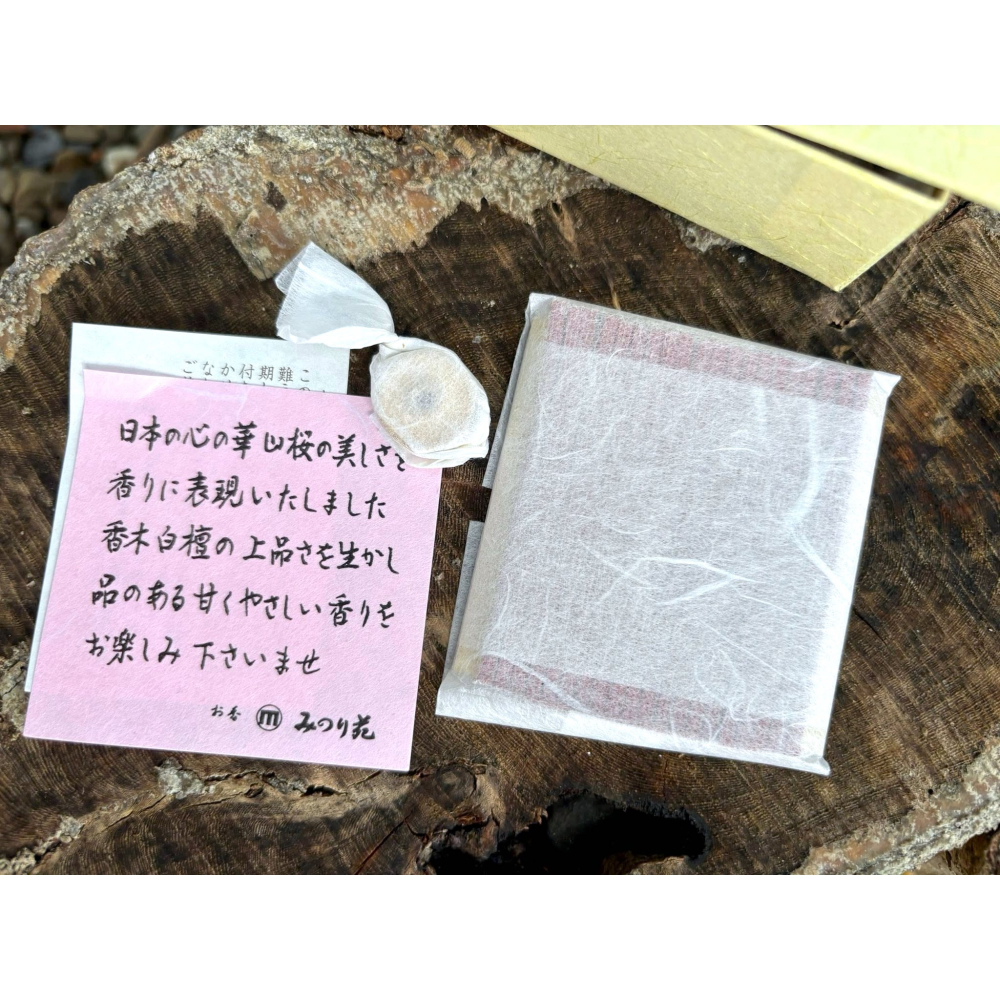 ごなか付期難こ
日本の心の華山桜の美しさを
香りに表現いたしました
香木白檀の上品さを生かし
品のある甘くやさしい香りを
お楽しみ下さいませ
お香 m みつり苑